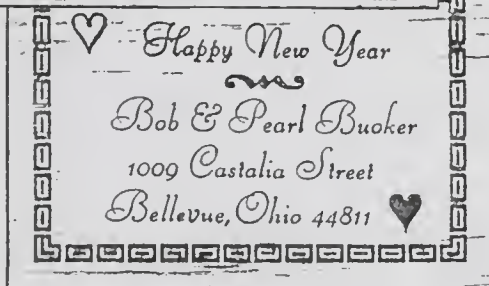 Happy New Year
Bob & Pearl Buoker
1009 Castalia Street
Bellevue, Ohio 44811